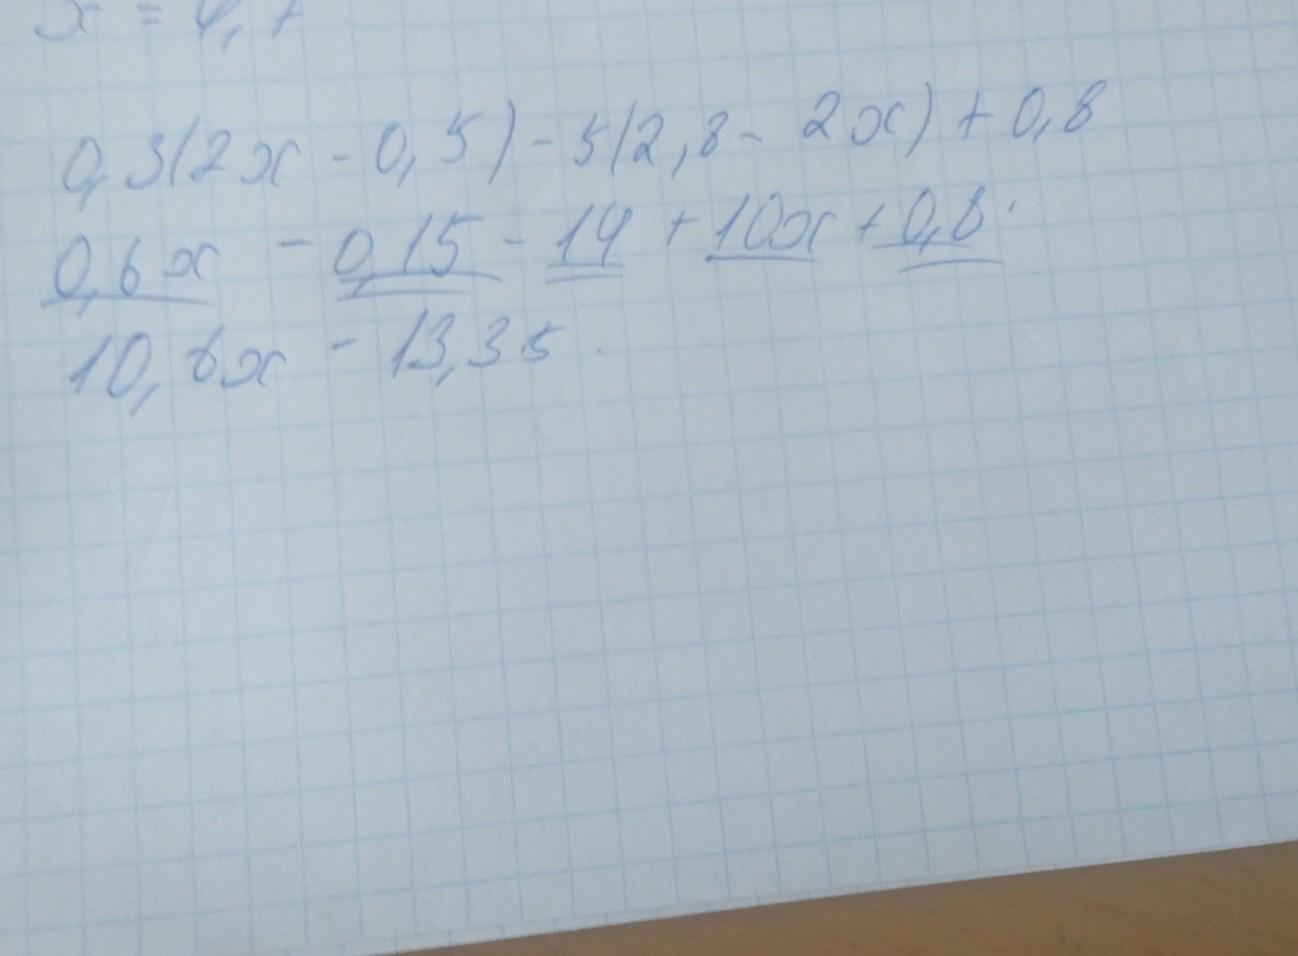 0,3(2x - 0,5) - 5(2,8 - 2x) + 0,8
0,6x - 0,15 - 14 + 10x + 0,8
10,6x - 13,35